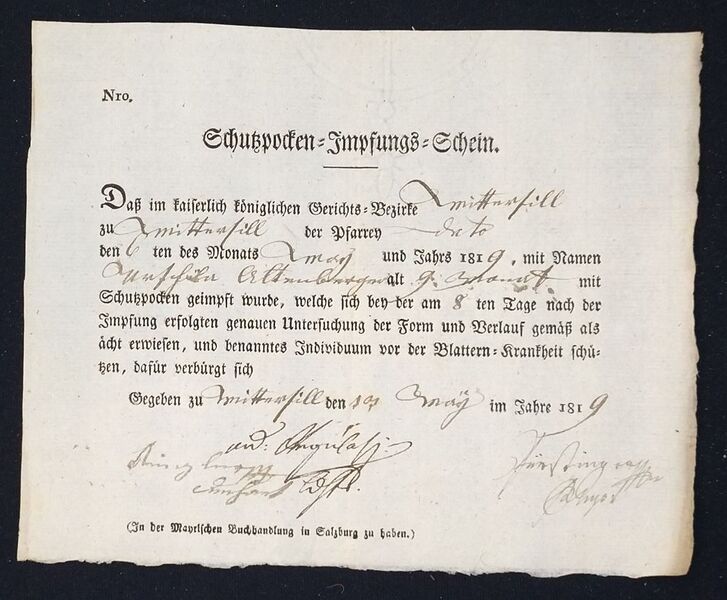 Nro.
Schutzpocken-Impfungs-Schein.
Daß im kaiserlich königlichen Gerichts-Bezirke Mittersill
zu Mittersill der Pfarrey deto
den 6 ten des Monats May und Jahrs 1819, mit Namen
Urschula Altenberger alt 9 Monat mit
Schutzpocken geimpft wurde, welche sich bey der am 8 ten Tage nach der
Impfung erfolgten genauen Untersuchung der Form und Verlauf gemäß als
ächt erwiesen, und benanntes Individuum vor der Blattern-Krankheit schü-
tzen, dafür verbürgt sich
Gegeben zu Mittersill den 13 May im Jahre 1819
(In der Mayrischen Buchhandlung in Salzburg zu haben.)